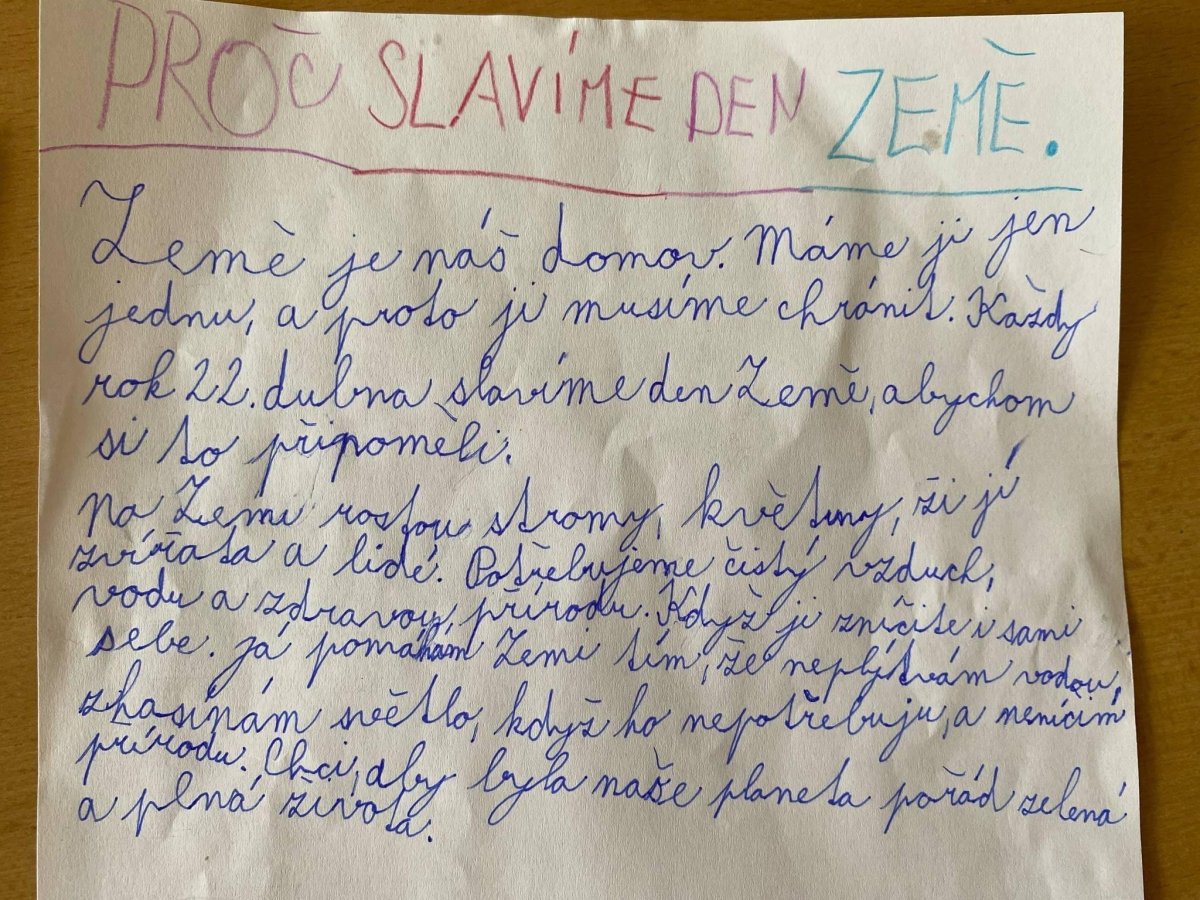 PROČ SLAVÍME DEN ZEMĚ.
Země je náš domov. Máme ji jen
jednu, a proto ji musíme chránit. Každý
rok 22. dubna slavíme den Země, abychom
si to připoměli.
Na Zemi rostou stromy, květiny, žijí
zvířata a lidé. Potřebujeme čistý vzduch,
vodu a zdravou, přírodu. Když ji zničíte i sami
sebe. Já pomáhám Zemi tím, že neplýtvám vodou,
zhasínám světlo, když ho nepotřebuju, a neničím
přírodu. Chci, aby byla naše planeta pořád zelená
a plná života.